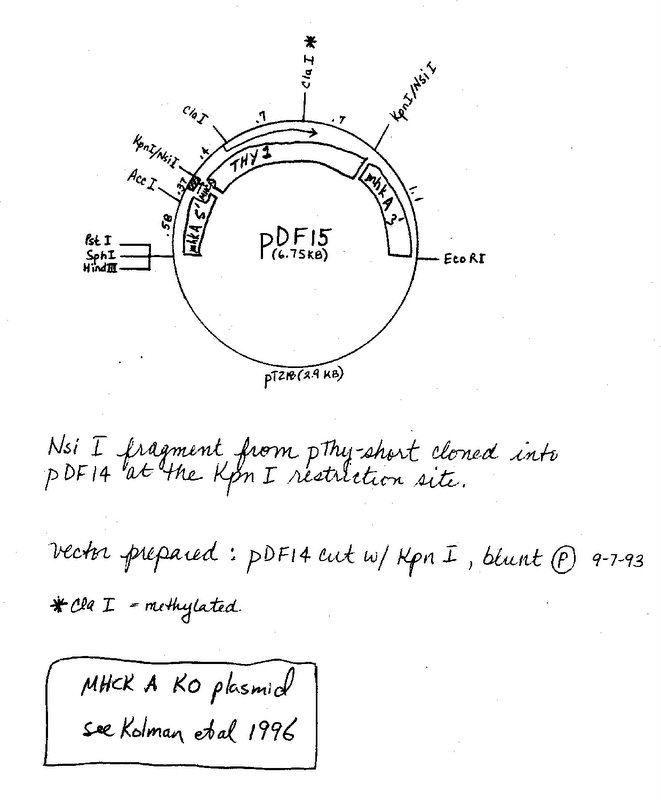 Cla I *
.7
.7
Cla I
KpnI/NsiI
.4
KpnI/NsiI
THY 1
Acc I
.37
mhkA 5'
mhkA 3'
1.1
.58
pDF15
(6.75KB)
Pst I
SphI
Hind III
Eco RI
pTZ18(2.9 KB)
Nsi I fragment from pThy-short cloned into
pDF14 at the Kpn I restriction site.
vector prepared : pDF14 cut w/ Kpn I, blunt Ⓟ 9-7-93
*Cla I = methylated.
MHCK A KO plasmid
see Kolman et al 1996